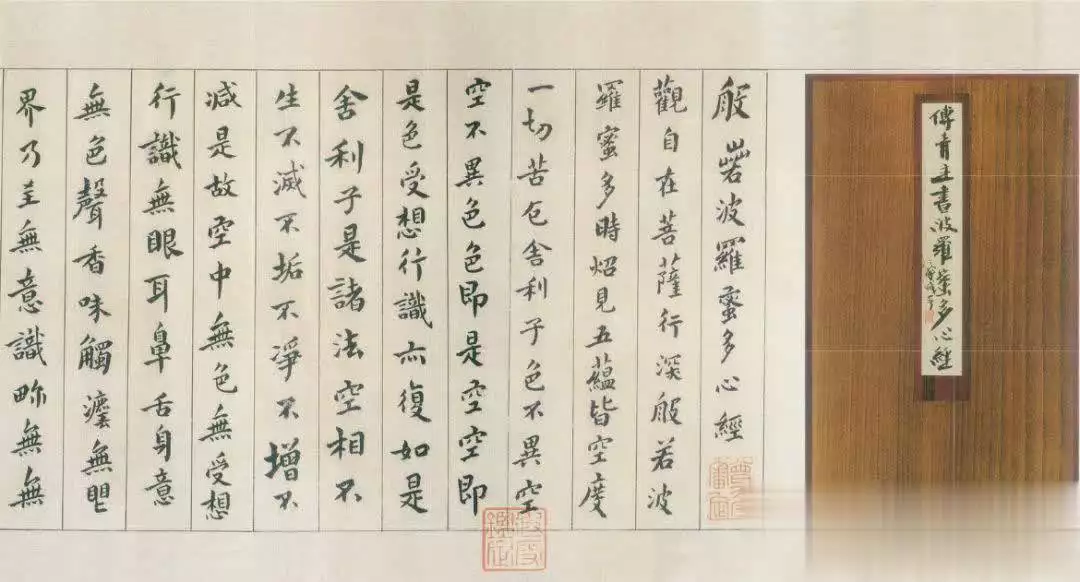 傅青主書波羅蜜多心經
般若波羅蜜多心經
觀自在菩薩行深般若波
羅蜜多時炤見五蘊皆空度
一切苦厄舍利子色不異空
空不異色色即是空空即
是色受想行識亦復如是
舍利子是諸法空相不
生不滅不垢不淨不增不
減是故空中無色無受想
行識無眼耳鼻舌身意
無色聲香味觸灋無眼
界乃至無意識畍無無